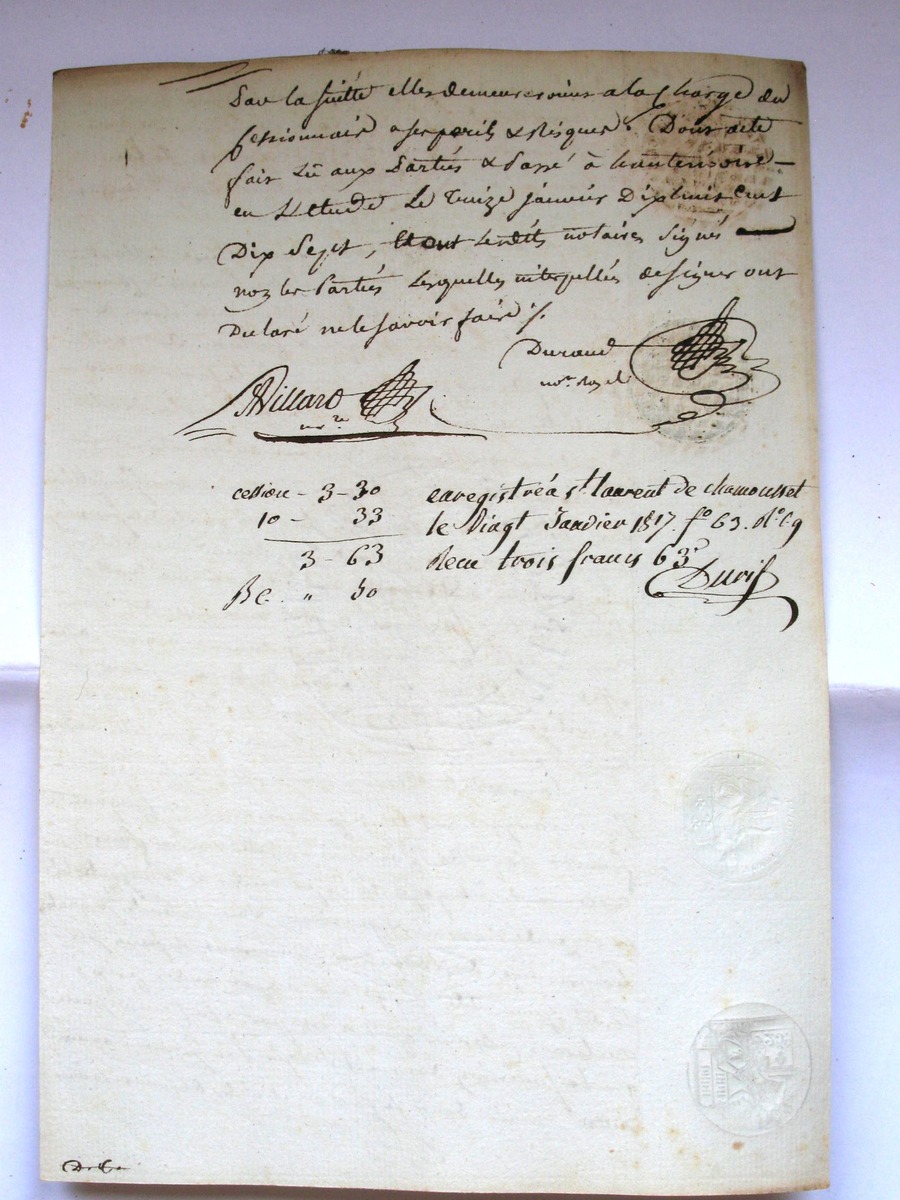 par la suitte elles demeureroient a la Charge du
cessionnair a ses perils & Risques. Dont acte
fait Lû aux Parties & Passé à hauterivoire
en L'Etude Le Treize janvier Dix huit Cent
Dix Sept, Et ont Lesdits notaires Signés
non les Parties Lesquelles interpellés de signer ont
Declaré ne le savoir faire
Durand
nore. Royal
Villard
nre
cession - 3 - 30
10 - 33
3 - 63
" 50
enregistré a st. laurent de chamousset
le Vingt Janvier 1817. fo 63. Ro. C. 9
Recu trois francs 63c